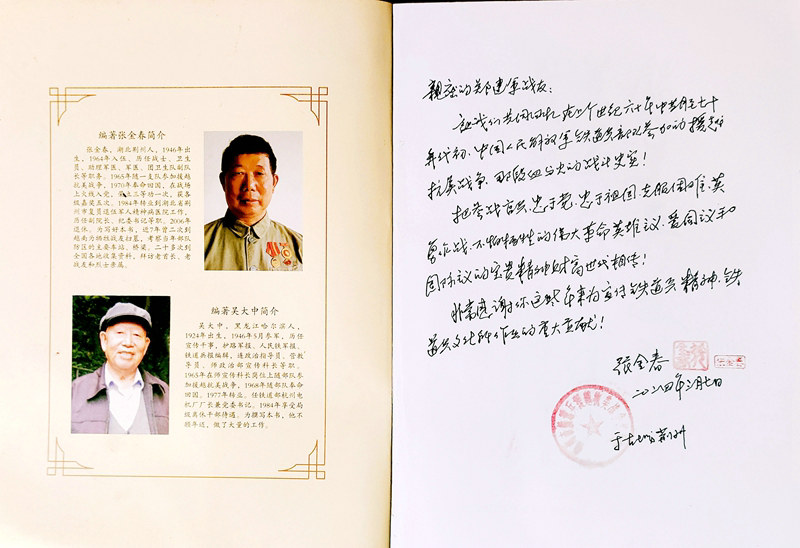 编著张金春简介
张金春，湖北荆州人，1946年出
生，1964年入伍，历任战士、卫生
员、助理军医、军医、团卫生队副队
长等职务。1965年随一支队参加援越
抗美战争，1970年奉命回国，在战场
上火线入党，荣立三等功一次，获各
级嘉奖五次。1984年转业到湖北省荆
州市复员退伍军人精神病医院工作，
历任副院长、纪委书记等职，2006年
退休。为写好本书，近7年曾二次到
越南为牺牲战友扫墓，考察当年部队
防区的主要车站、桥梁。二十多次到
全国各地收集资料，拜访老首长、老
战友和烈士亲属。
编著吴大中简介
吴大中，黑龙江哈尔滨人，
1924年出生，1946年5月参军，历任
宣传干事，护路军报、人民铁军报、
铁道兵报编辑，连政治指导员、营教
导员、师政治部宣传科长等职。
1965年在师宣传科长岗位上随部队参
加援越抗美战争，1968年随部队奉命
回国，1977年转业，任铁道部杭州电
机厂厂长兼党委书记。1984年享受局
级离休干部待遇。为撰写本书，他不
顾年迈，做了大量的工作。
亲爱的郑建原战友：
我们共同回忆在上个世纪六十年中期至七十
年代初，中国人民解放军铁道兵部队参加的援越
抗美战争，那段血与火的战斗史实！
把参战官兵，忠于党，忠于祖国，克服困难，英
勇作战，不怕牺牲的伟大革命英雄主义，爱国主义和
国际主义的宝贵精神财富世代相传！
非常感谢你这些年来为宣传铁道兵精神，铁
道兵文化所作出的重大贡献！
张金春
二〇二四年三月七日
于古城荆州